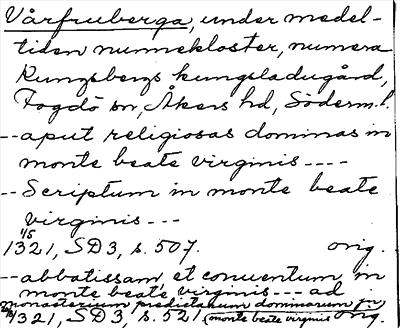 Vårfruberga, under medel-
tiden nunnekloster, numera
Kungsbergs kungsladugård,
Fogdö sn, Åkers hd, Söderm.l.
--aput religiosas dominas in
monte beate virginis ----
--Scriptum in monte beate
virginis ---
1/5
1321, SD3, s. 507. orig.
--abbatissam et conuentum in
monte beate virginis --- ad
monasterium predictarum dominarum in
1321, SD3, s. 521. (monte beate virginis orig.